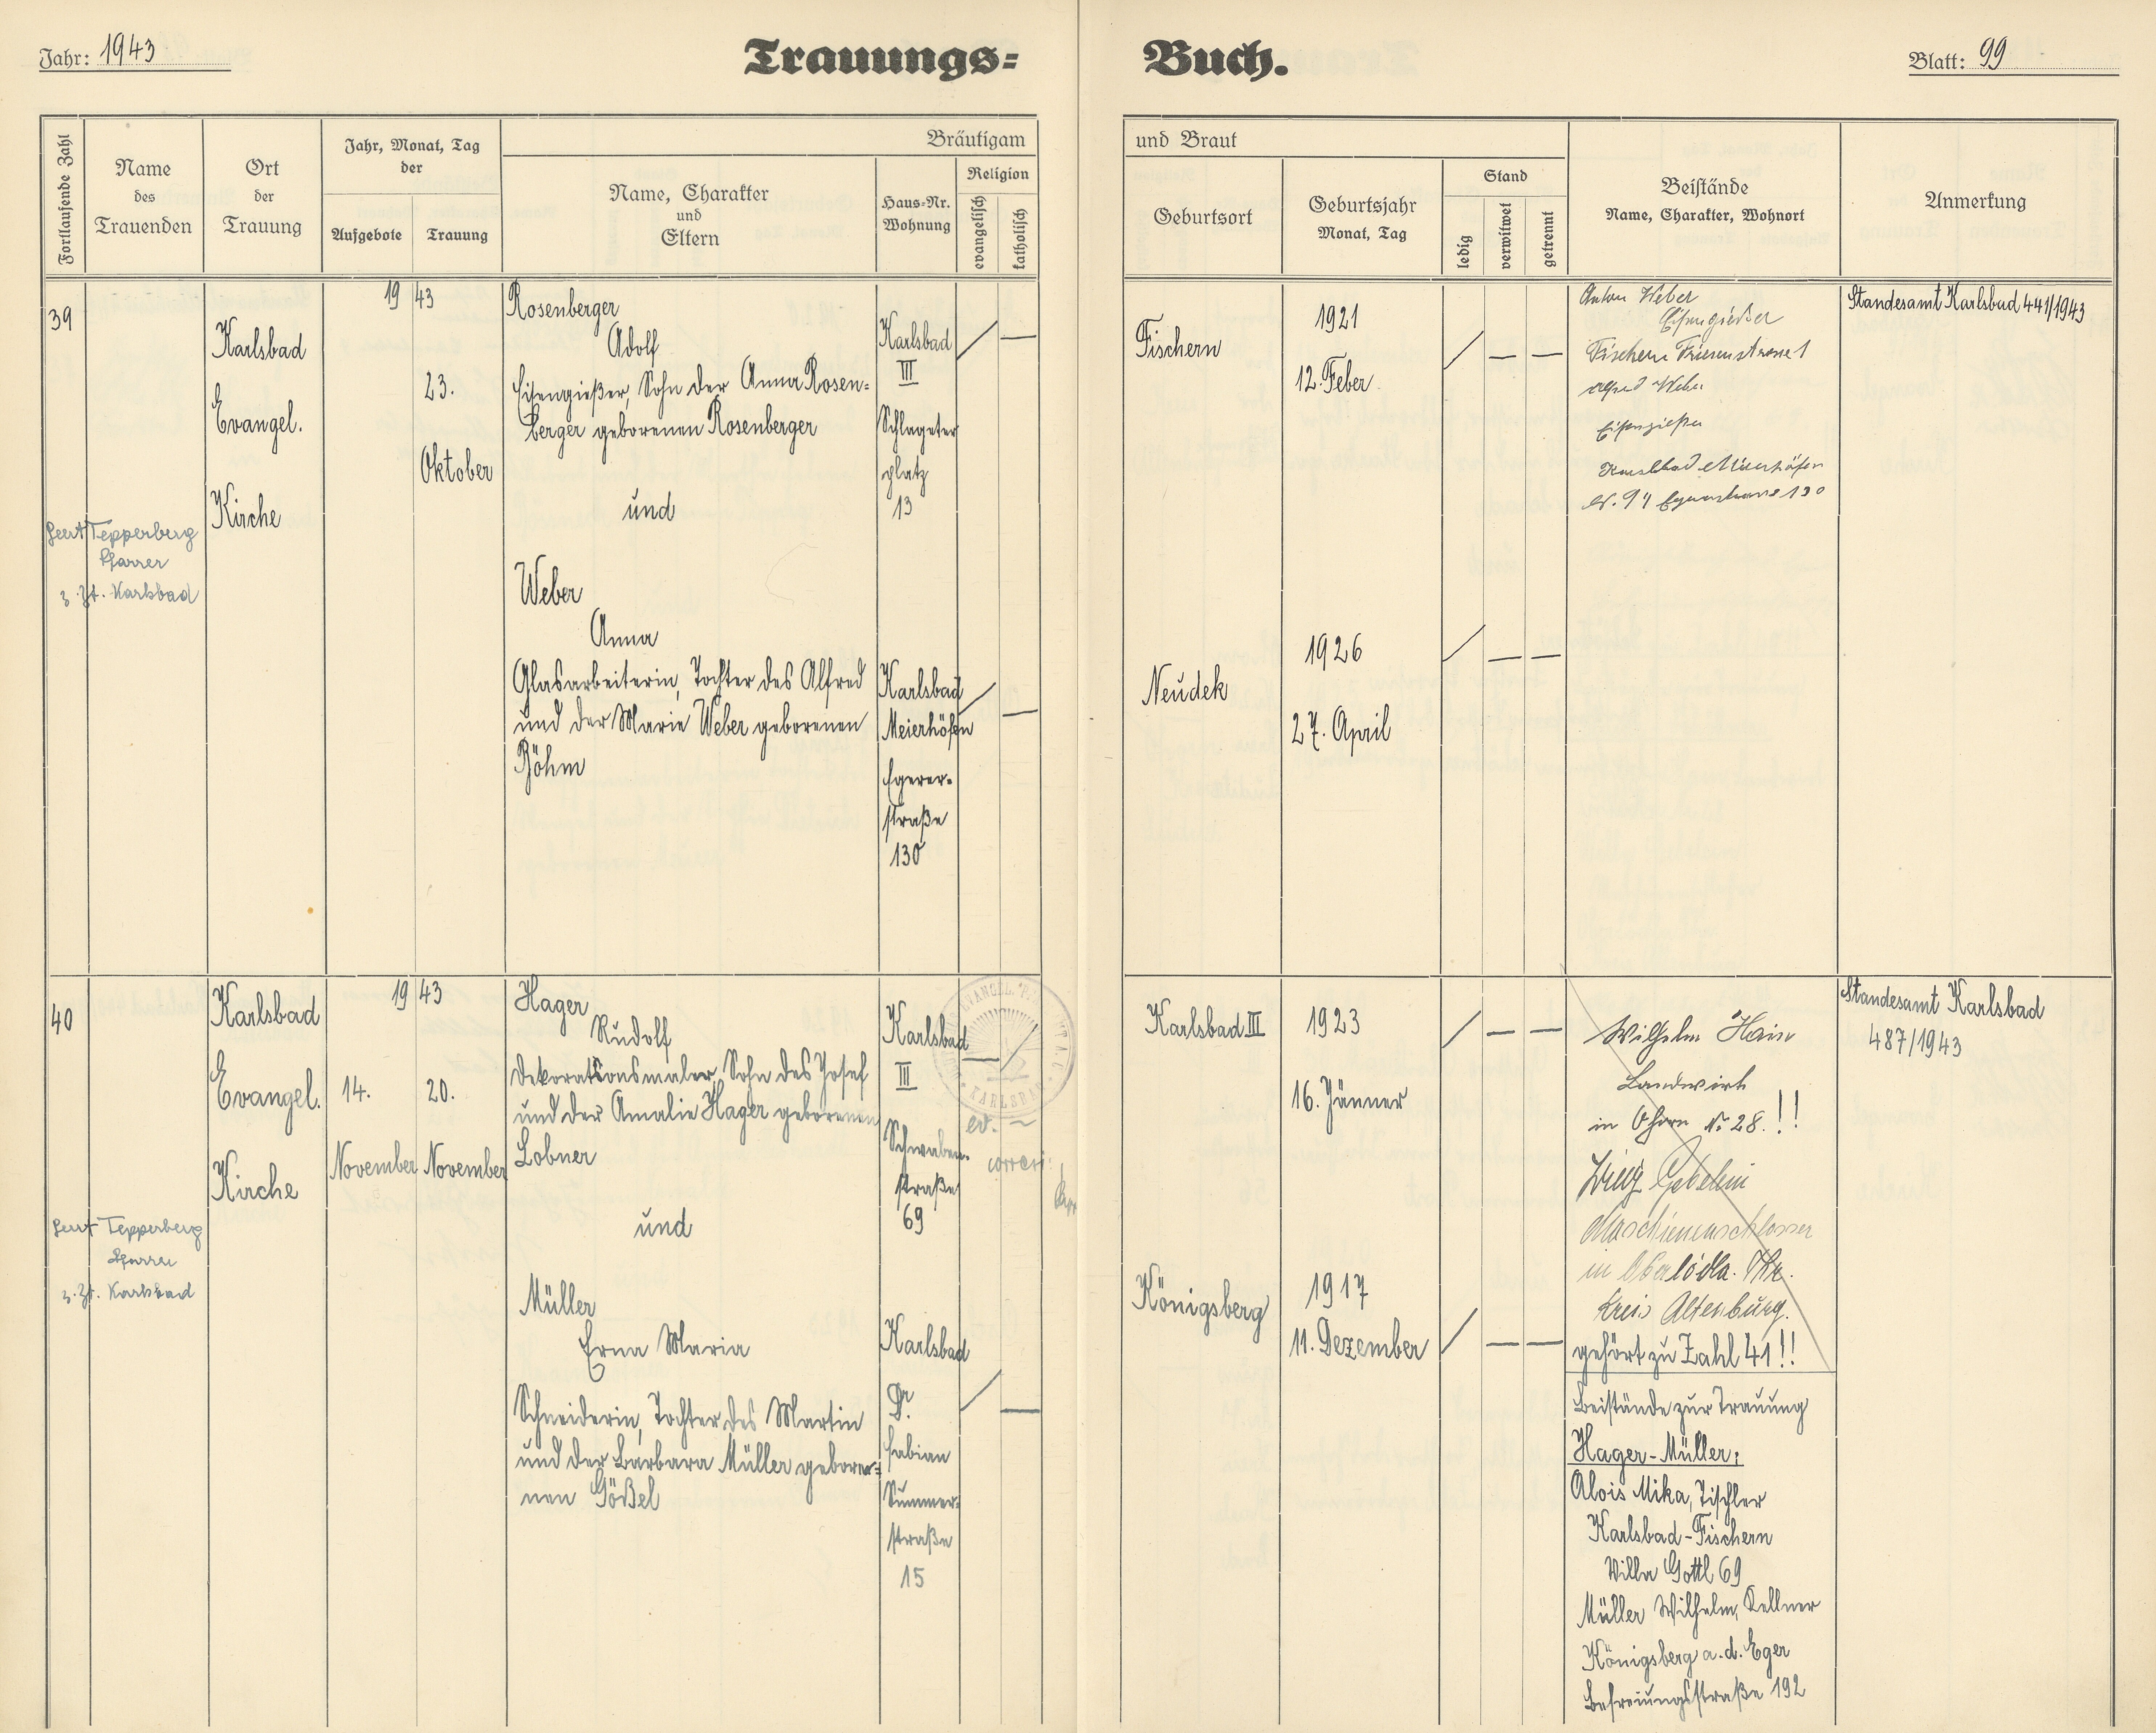 Jahr: 1943
Trauungs=
Buch.
Blatt: 99
Fortlaufende Zahl
Name
des
Trauenden
Ort
der
Trauung
Jahr, Monat, Tag
der
Aufgebote
Trauung
Bräutigam
Name, Charakter
und
Eltern
Haus=Nr.
Wohnung
Religion
evangelisch
katholisch
und Braut
Geburtsort
Geburtsjahr
Monat, Tag
Stand
ledig
verwitwet
getrennt
Beistände
Name, Charakter, Wohnort
Anmerkung
39
Tepperberg
Pfarrer
z. Zt. Karlsbad
Karlsbad
Evangel.
Kirche
19 43
23.
Oktober
Rosenberger
Adolf
Eisengießer, Sohn der Anna Rosen=
berger geborenen Rosenberger
und
Weber
Anna
Glasarbeiterin, Tochter des Alfred
und der Marie Weber geborenen
Böhm
Karlsbad
III
Schlageter
platz
13
Karlsbad
Meierhöfen
Egerer-
straße
130
Fischern
1921
12. Feber
Neudek
1926
27. April
Anton Weber
Eisengießer
Fischern
Alfred Weber
Eisengießer
Karlsbad Meierhöfen
130
Standesamt Karlsbad 441/1943
40
Tepperberg
Pfarrer
z. Zt. Karlsbad
Karlsbad
Evangel.
Kirche
19 43
14.
November
20.
November
Hager
Rudolf
Dekorationsmaler, Sohn des Josef
und der Amalie Hager geborenen
Lobner
und
Müller
Erna Maria
Schneiderin, Tochter des Martin
und der Barbara Müller gebore=
nen Gößel
Karlsbad
III
Schwaben-
straße
69
Karlsbad
Dr.
Fabian
Summer=
straße
15
EVANGEL.
KARLSBAD
ev.
Karlsbad III
1923
16. Jänner
Königsberg
1917
11. Dezember
Wilhelm Hain
Landwirt
in Ohorn № 28.!!
Maschienenschlosser
in Thr.
Kreis Altenburg.
gehört zu Zahl 41!!
Beistände zur Trauung
Hager-Müller:
Alois Mika, Tischler
Karlsbad-Fischern
Villa Gottl 69
Müller Wilhelm, Kellner
Königsberg a. d. Eger
Befreiungsstraße 192
Standesamt Karlsbad
487/1943